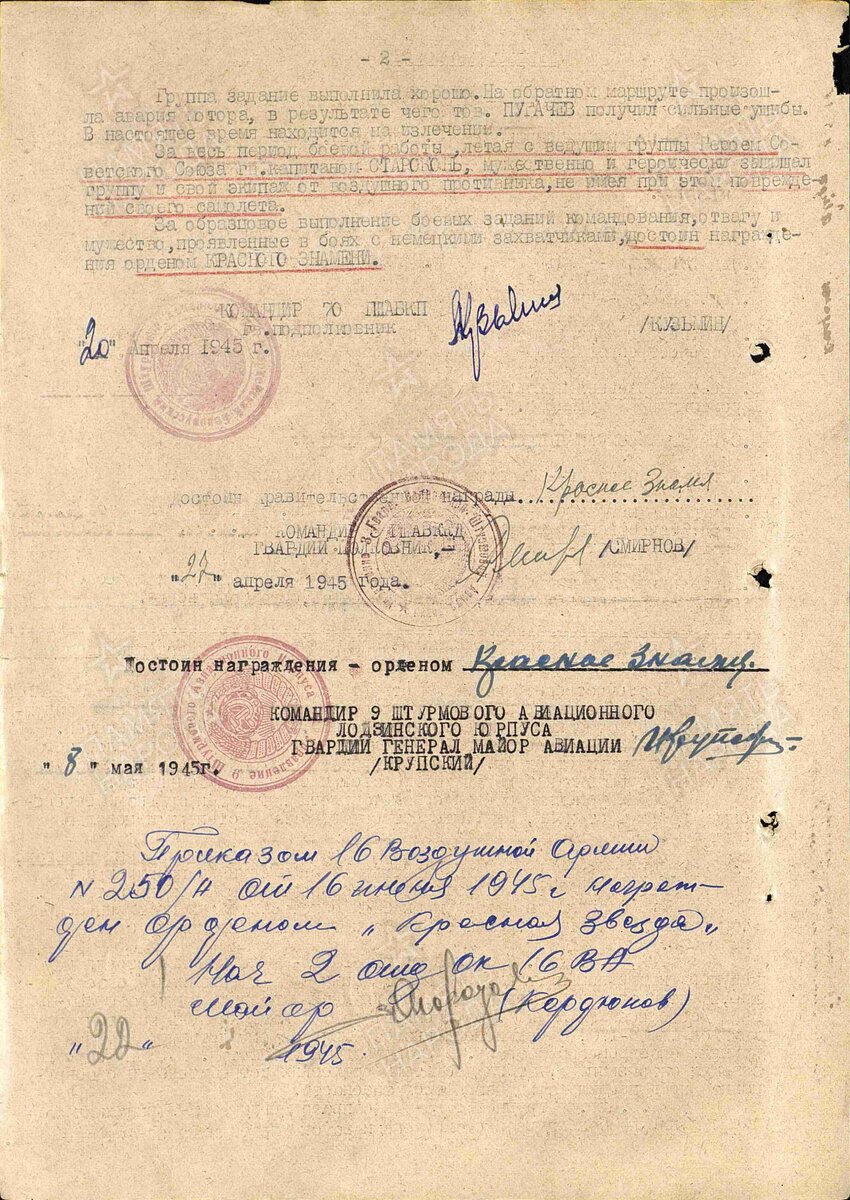 - 2 -
Группа задание выполнила хорошо. На обратном маршруте произош-
ла авария мотора, в результате чего тов. ПУГАЧЕВ получил сильные ушибы.
В настоящее время находится на излечении.
За весь период боевой работы ,летая с ведущим группы Героем Со-
ветского Союза гв.капитаном , мужественно и героически защищал
группу и свой экипаж от воздушного противника,не имея при этом поврежде-
ний своего самолета.
За образцовое выполнение боевых заданий командования,отвагу и
мужество,проявленные в боях с немецкими захватчиками,достоин награжде-
ния орденом КРАСНОГО ЗНАМЕНИ.
КОМАНДИР 70 ГШАВКП
гв.подполковник /КУЗЬМИН/
"20" Апреля 1945 г.
ПАМЯТЬ НАРОДА
Достоин правительственной награды Красное Знамя
КОМАНДИР ГШАВКД
ГВАРДИИ ПОЛКОВНИК,- /СМИРНОВ/
"27" апреля 1945 года.
Достоин награждения - орденом Красное Знамя.
КОМАНДИР 9 ШТУРМОВОГО АВИАЦИОННОГО
ЛОДЗИНСКОГО КОРПУСА
ГВАРДИИ ГЕНЕРАЛ МАЙОР АВИАЦИИ
/КРУПСКИЙ/
" 8 " мая 1945г.
Приказом 16 Воздушной Армии
N 250/н от 16 июня 1945 г награж-
ден орденом „Красная Звезда"
Нач 2 отд ОК 16 ВА
Майор (Кордюков)
"22" 1945.